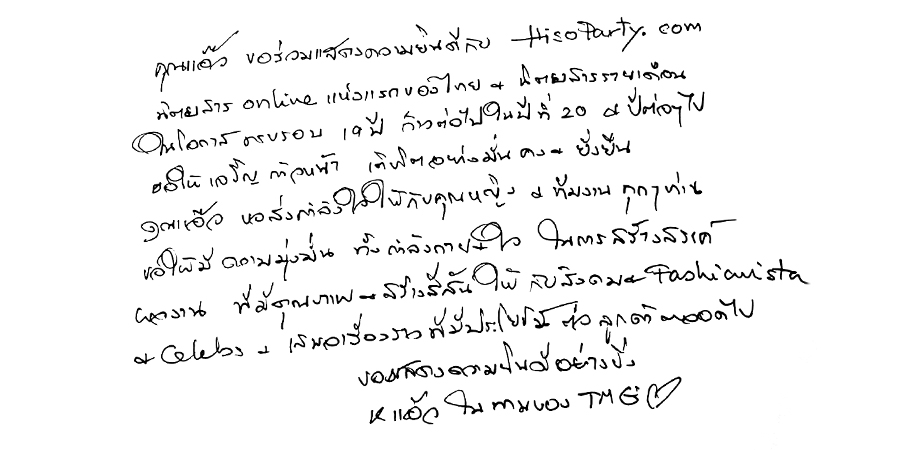 คุณแอ๊ว ขอร่วมแสดงความยินดีกับ HisoParty.com
นิตยสาร online แห่งแรกของไทย & นิตยสารรายเดือน
ในโอกาสครบรอบ 19 ปี ก้าวต่อไปในปีที่ 20 & ปีต่อๆไป
ขอให้เจริญก้าวหน้า เติบโตอย่างมั่นคง & ยั่งยืน
คุณแอ๊ว ขอส่งกำลังใจให้กับคุณหญิง & ทีมงานทุกๆท่าน
ขอให้มีความมุ่งมั่น ทั้งกำลังกาย+ใจ ในการสร้างสรรค์
ผลงาน ที่มีคุณภาพ & สร้างสีสันให้กับสังคม & Fashionista
& Celebs & เสนอเรื่องราวที่มีประโยชน์ต่อ ตลอดไป
ขอแสดงความยินดีอย่างยิ่ง
แอ๊ว ในนามของ TMG